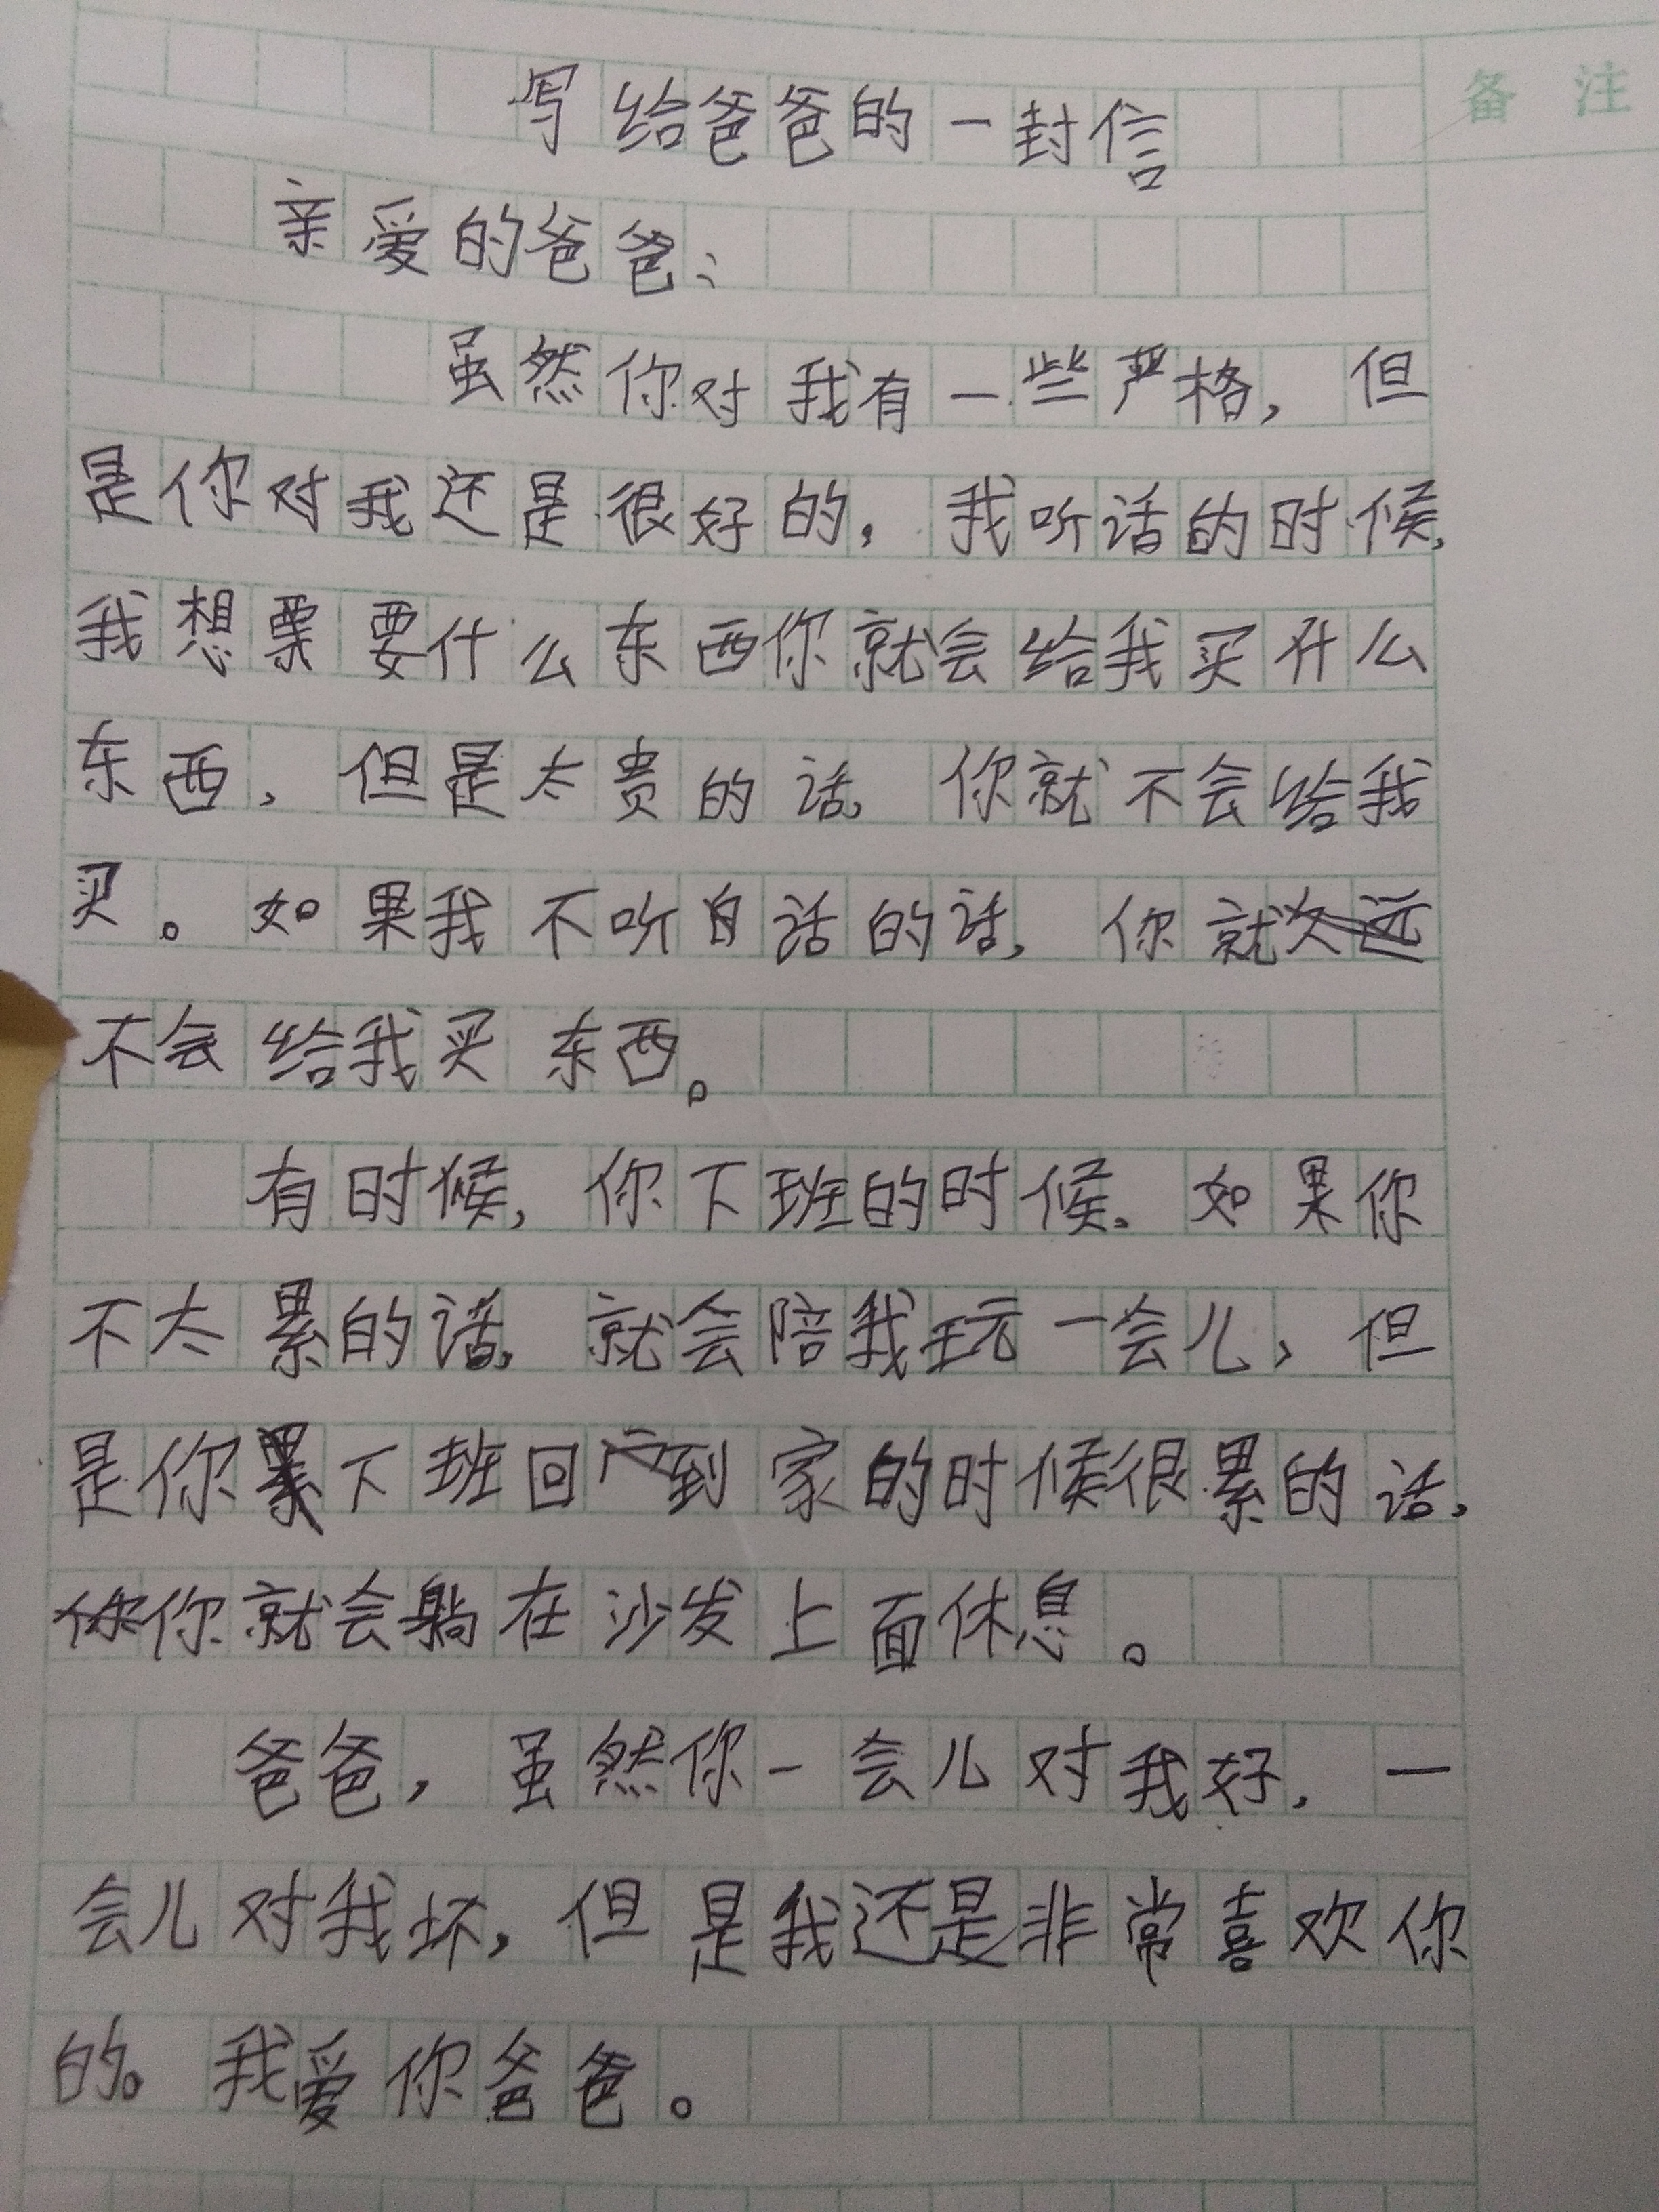 备 注
写给爸爸的一封信
亲爱的爸爸：
虽然你对我有一些严格，但
是你对我还是很好的，我听话的时候，
我想票要什么东西你就会给我买什么
东西，但是太贵的话，你就不会给我
买。如果我不听话的话，你就
不会给我买东西。
有时候，你下班的时候，如果你
不太累的话，就会陪我玩一会儿，但
是你下班回到家的时候很累的话，
你就会躺在沙发上面休息。
爸爸，虽然你一会儿对我好，一
会儿对我坏，但是我还是非常喜欢你
的。我爱你爸爸。